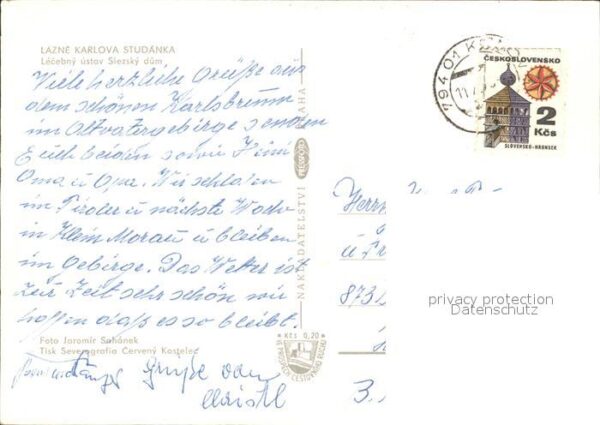 LÁZNĚ KARLOVA STUDÁNKA
Léčebný ústav Slezský dům
Viele herzliche Grüße aus
dem schönen Karlsbrunn
im Altvatergebirge senden
Euch beiden sowie
Oma u Opa. Wir schlafen
im Tiroler u nächste Woche
in Klein Morau u bleiben
im Gebirge. Das Wetter ist
zur Zeit sehr schön wir
hoffen daß es so bleibt.
Foto Jaromír
Tisk Severografia Červený Kostelec
Grüße von
NAKLADATELSTVÍ PRESSFOTO PRAHA
Kčs 0,20
794 01
11.
ČESKOSLOVENSKO
2
Kčs
SLOVENSKO-HRONSEK
Herrn
u Fr
873
3.
privacy protection
Datenschutz